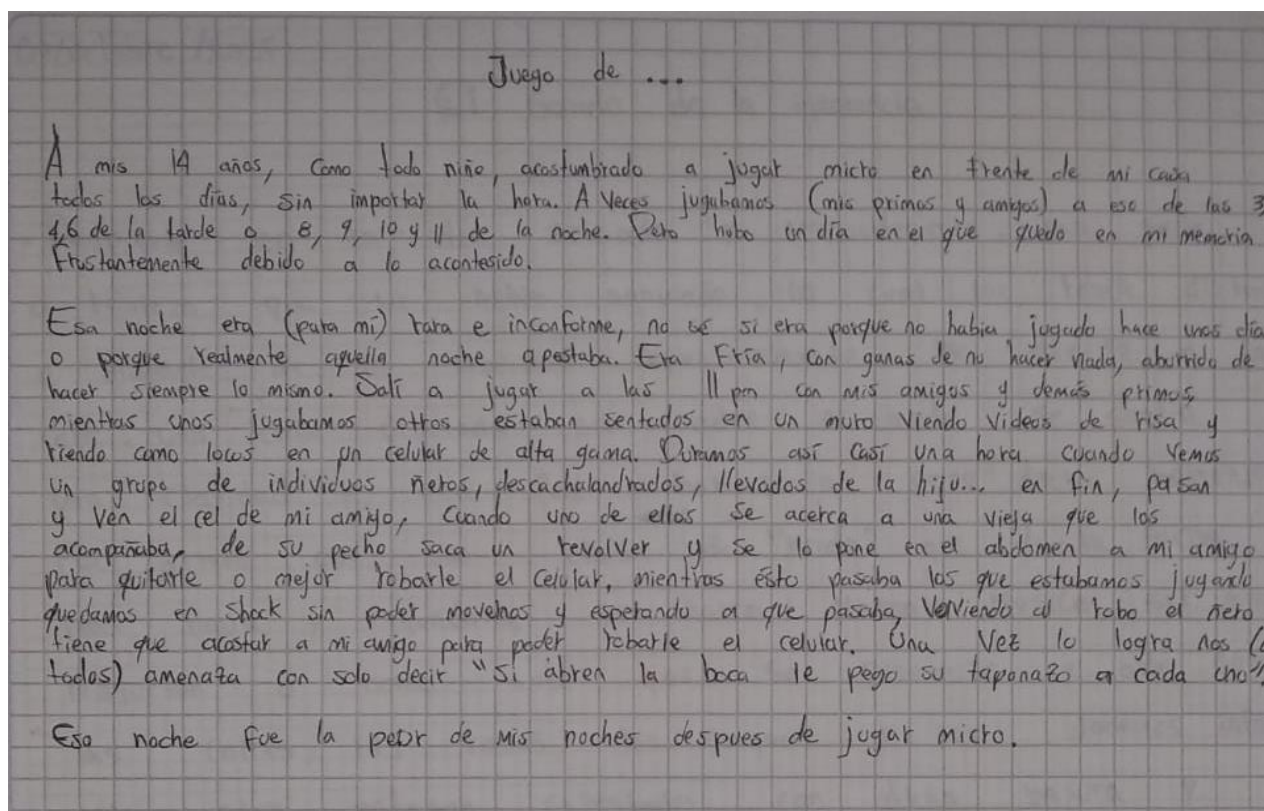 Juego de ...
A mis 14 años, Como todo niño, acostumbrado a jugar micro en frente de mi casa
todos los días, Sin importar la hora. A Veces jugabamos (mis primos y amigos) a eso de las 3
4,6 de la tarde o 8, 9, 10 y 11 de la noche. Pero hobo un día en el que quedo en mi memoria
Frustantemente debido a lo acontesido.
Esa noche era (para mí) rara e inconforme, no sé si era porque no habia jugado hace unos día
o porque realmente aquella noche apestaba. Era Fría, con ganas de no hacer nada, aburrido de
hacer siempre lo mismo. Salí a jugar a las 11 pm con mis amigos y demás primos,
mientras unos jugabamos otros estaban sentados en un muro Viendo Videos de risa y
riendo como locos en un celular de alta gama. Duramos así Casí una hora cuando Vemos
un grupo de individuos ñeros, descachalandrados, llevados de la hiju... en fin, pasan
y Ven el cel de mi amigo, Cuando uno de ellos se acerca a una vieja que los
acompañaba, de su pecho saca un revolver y se lo pone en el abdomen a mi amigo
para quitarle o mejor robarle el Celular, mientras ésto pasaba los que estabamos jugando
quedamos en Shock sin poder movernos y esperando a que pasaba, Volviendo al robo el ñero
tiene que acostar a mi amigo para poder robarle el celular. Una Vez lo logra nos (a
todos) amenaza con solo decir "Si abren la boca le pego su taponazo a cada uno".
Esa noche fue la peor de mis noches despues de jugar micro.